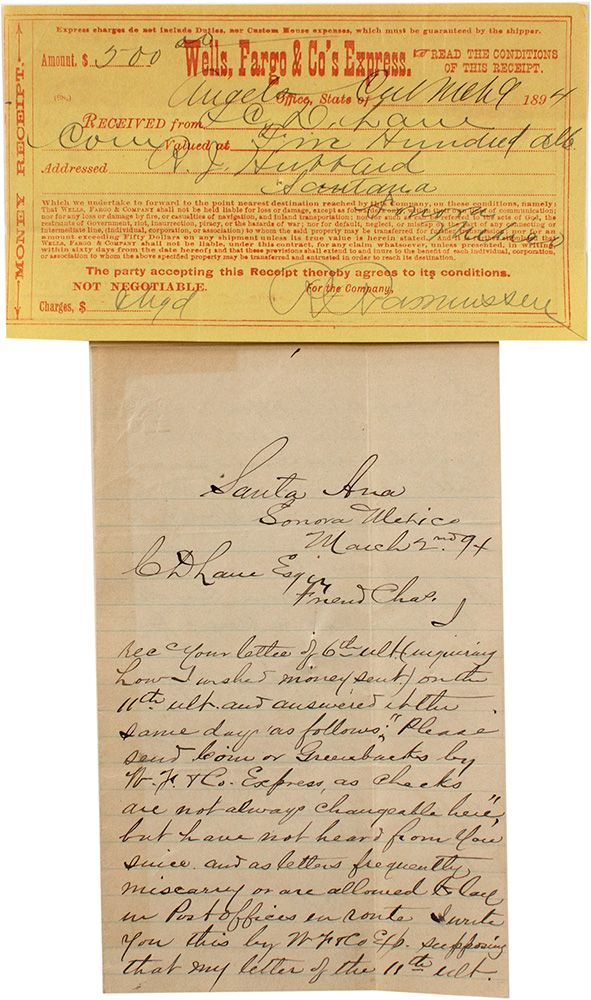 Express charges do not include Duties, nor Custom House expenses, which must be guaranteed by the shipper.
MONEY RECEIPT.
Amount, $ 500 00
Wells, Fargo & Co's Express.
READ THE CONDITIONS
OF THIS RECEIPT.
Angels Office, State of Cal Mch 9 1894
RECEIVED from C. D. Lane
Coin Valued at Five Hundred Dolls
Addressed R. J. Hubbard
Santana
Sonora
Mexico
Which we undertake to forward to the point nearest destination reached by this Company, on these conditions, namely:
That WELLS, FARGO & COMPANY shall not be held liable for loss or damage, except as forwarders only within their own lines of communication;
nor for any loss or damage by fire, or casualties of navigation, and inland transportation; nor for such as can be referred to the acts of God, the
restraints of Government, riot, insurrection, piracy, or the hazards of war; nor for default, neglect, or mishap on the part of any connecting or
intermediate line, (individual, corporation, or association) to whom the said property may be transferred for further transmission; nor for an
amount exceeding Fifty Dollars on any shipment unless its true value is herein stated. And it is further stipulated that
WELLS, FARGO & COMPANY shall not be liable, under this contract, for any claim whatsoever, unless presented, in writing
within sixty days from the date hereof; and that these provisions shall extend to and inure to the benefit of each individual, corporation,
or association to whom the above specified property may be transferred and entrusted in order to reach its destination.
The party accepting this Receipt thereby agrees to its conditions.
NOT NEGOTIABLE.
For the Company,
Charges, $ Chgd
Rasmussen
Santa Ana
Sonora Mexico
March 2nd 94
C D Lane Esqr
Friend Chas.
Recd your letter of 6th ult (inquiring
how I wished money sent) on the
11th ult. and answered it the
same day as follows, "Please
send Coin or Greenbacks by
W. F. & Co. Express, as checks
are not always changeable here",
but have not heard from you
since and as letters frequently
miscarry or are allowed to lay
in Post Offices en route I write
you this by W F & Co Exp. supposing
that my letter of the 11th ult.